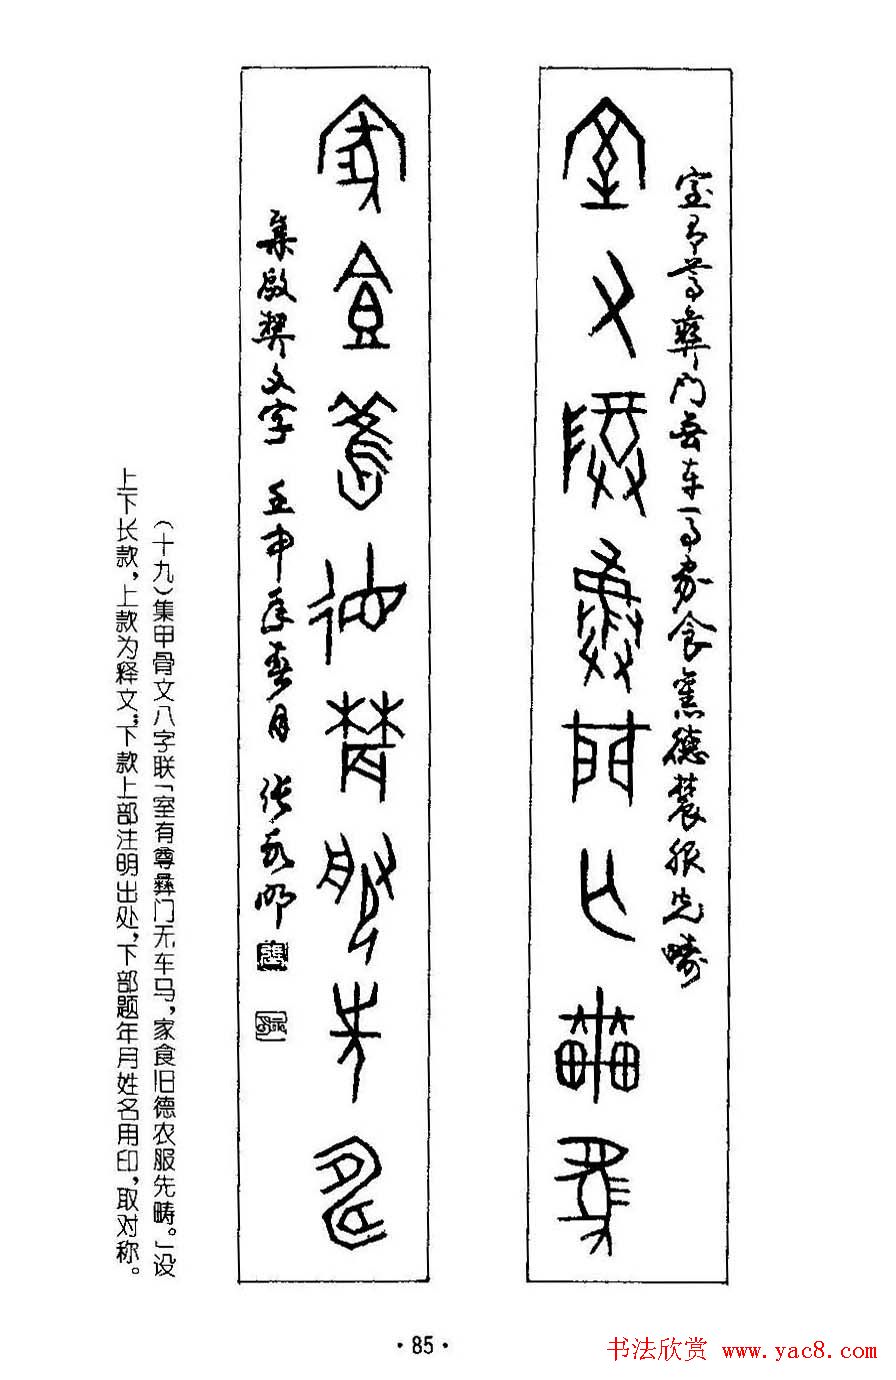 室有尊彝门无车马家食旧德农服先畴
室又尊彝門亡車馬
家食舊德農服先疇
集殷契文字 壬申年春月 张永明
(十九)集甲骨文八字联「室有尊彝门无车马,家食旧德农服先畴。」设
上下长款,上款为释文;下款上部注明出处,下部题年月姓名用印,取对称。
·85·
书法欣赏 www.yac8.com